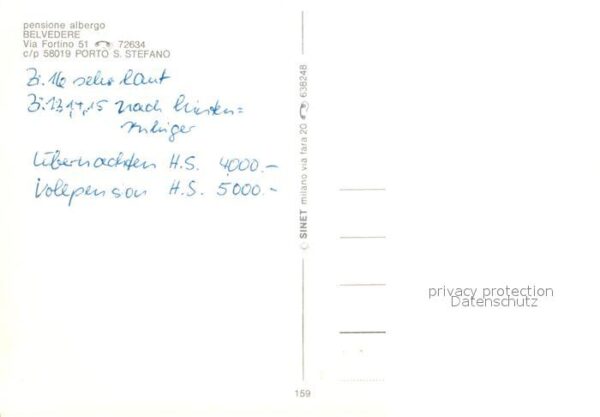 pensione albergo
BELVEDERE
Via Fortino 51 ☎ 72634
c/p 58019 PORTO S. STEFANO
Zi. 16 sehr laut
Zi. 13,14,15 nach hinten =
ruhiger
Übernachten H.S. 4000.-
Vollpension H.S. 5000.-
© SINET milano via fara 20 ☎ 638248
privacy protection
Datenschutz
159